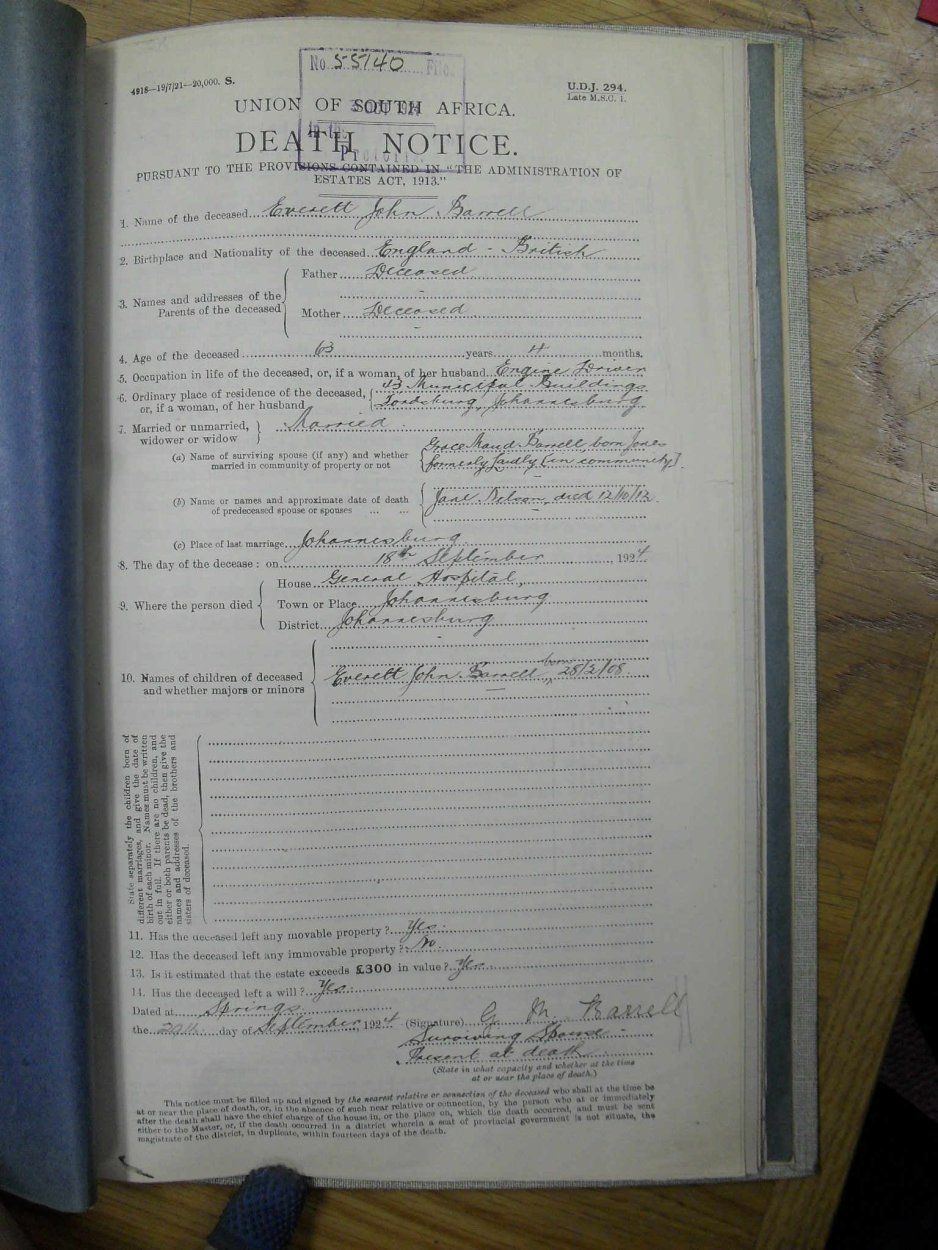 No 55140 File.
4918—19/7/21—20,000. S.
U.D.J. 294.
Late M.S.C. 1.
UNION OF SOUTH AFRICA.
DEATH NOTICE.
In the
Pretoria.
PURSUANT TO THE PROVISIONS CONTAINED IN "THE ADMINISTRATION OF
ESTATES ACT, 1913."
1. Name of the deceased Everett John Barrell
2. Birthplace and Nationality of the deceased England - British
3. Names and addresses of the Parents of the deceased
Father Deceased
Mother Deceased
4. Age of the deceased 63 years 4 months.
5. Occupation in life of the deceased, or, if a woman, of her husband Engine Driver
6. Ordinary place of residence of the deceased, 43 Municipal Buildings
or, if a woman, of her husband Fordsburg, Johannesburg
7. Married or unmarried, widower or widow Married
(a) Name of surviving spouse (if any) and whether Grace Maud Barrell born Jones
married in community of property or not formerly (in community)
(b) Name or names and approximate date of death Jane Nelson, died 12/10/12
of predeceased spouse or spouses ... ...
(c) Place of last marriage Johannesburg
8. The day of the decease : on 18th September 1924
9. Where the person died
House General Hospital,
Town or Place Johannesburg
District Johannesburg
10. Names of children of deceased and whether majors or minors
Everett John Barrell born 28/2/08
State separately the children born of
different marriages, and give the date of
birth of each minor. Names must be written
out in full. If there are no children, and
either or both parents be dead, then give the
names and addresses of the brothers and
sisters of deceased.
11. Has the deceased left any movable property ? Yes
12. Has the deceased left any immovable property ? No
13. Is it estimated that the estate exceeds £300 in value ? Yes
14. Has the deceased left a will ? Yes
Dated at Springs
the day of September 1924 (Signature) G. M. Barrell
Surviving Spouse
Present at death
(State in what capacity and whether at the time
at or near the place of death.)
This notice must be filled up and signed by the nearest relative or connection of the deceased who shall at the time be
at or near the place of death, or, in the absence of such near relative or connection, by the person who at or immediately
after the death shall have the chief charge of the house in, or the place on, which the death occurred, and must be sent
either to the Master, or, if the death occurred in a district wherein a seat of provincial government is not situate, the
magistrate of the district, in duplicate, within fourteen days of the death.